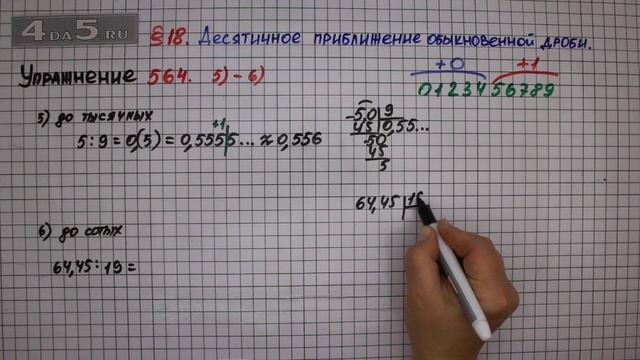 4DA5.RU
§18. Десятичное приближение обыкновенной дроби.
Упражнение 564. 5)-6)
+0 +1
0 1 2 3 4 5 6 7 8 9
5) до тысячных
5:9=0,(5)=0,5555...≈0,556
+1
-5,0 9
45 0,55...
50
45
5
6) до сотых
64,45:19=
64,45